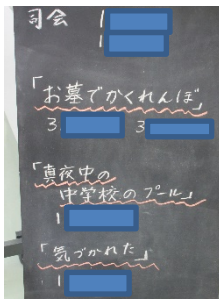 司会 1
1
「お墓でかくれんぼ」
3 3
「真夜中の
中学校のプール」
1
「気づかれた」
1